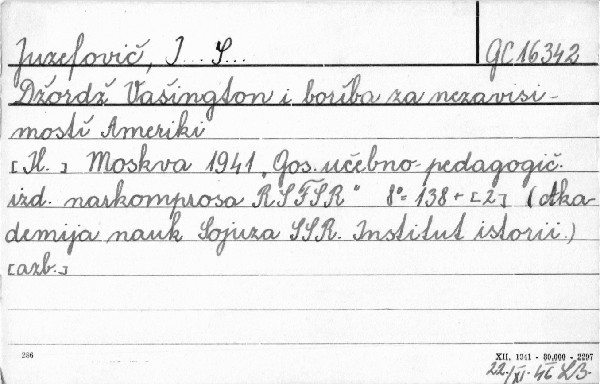 Juzefovič, I... S...
GC16342
Džordž Vašington i boŕba za nezavisi-
mostí Ameriki
[Il.] Moskva 1941 „Gos. učebno-pedagogič.
izd. narkomprosa RSFSR“ 8° 138 + [2] (Aka-
demija nauk Sojuza SSR. Institut istorii.)
[azb.]
286
XII. 1941 - 80.000 - 2297
22./XI. 46 LB.